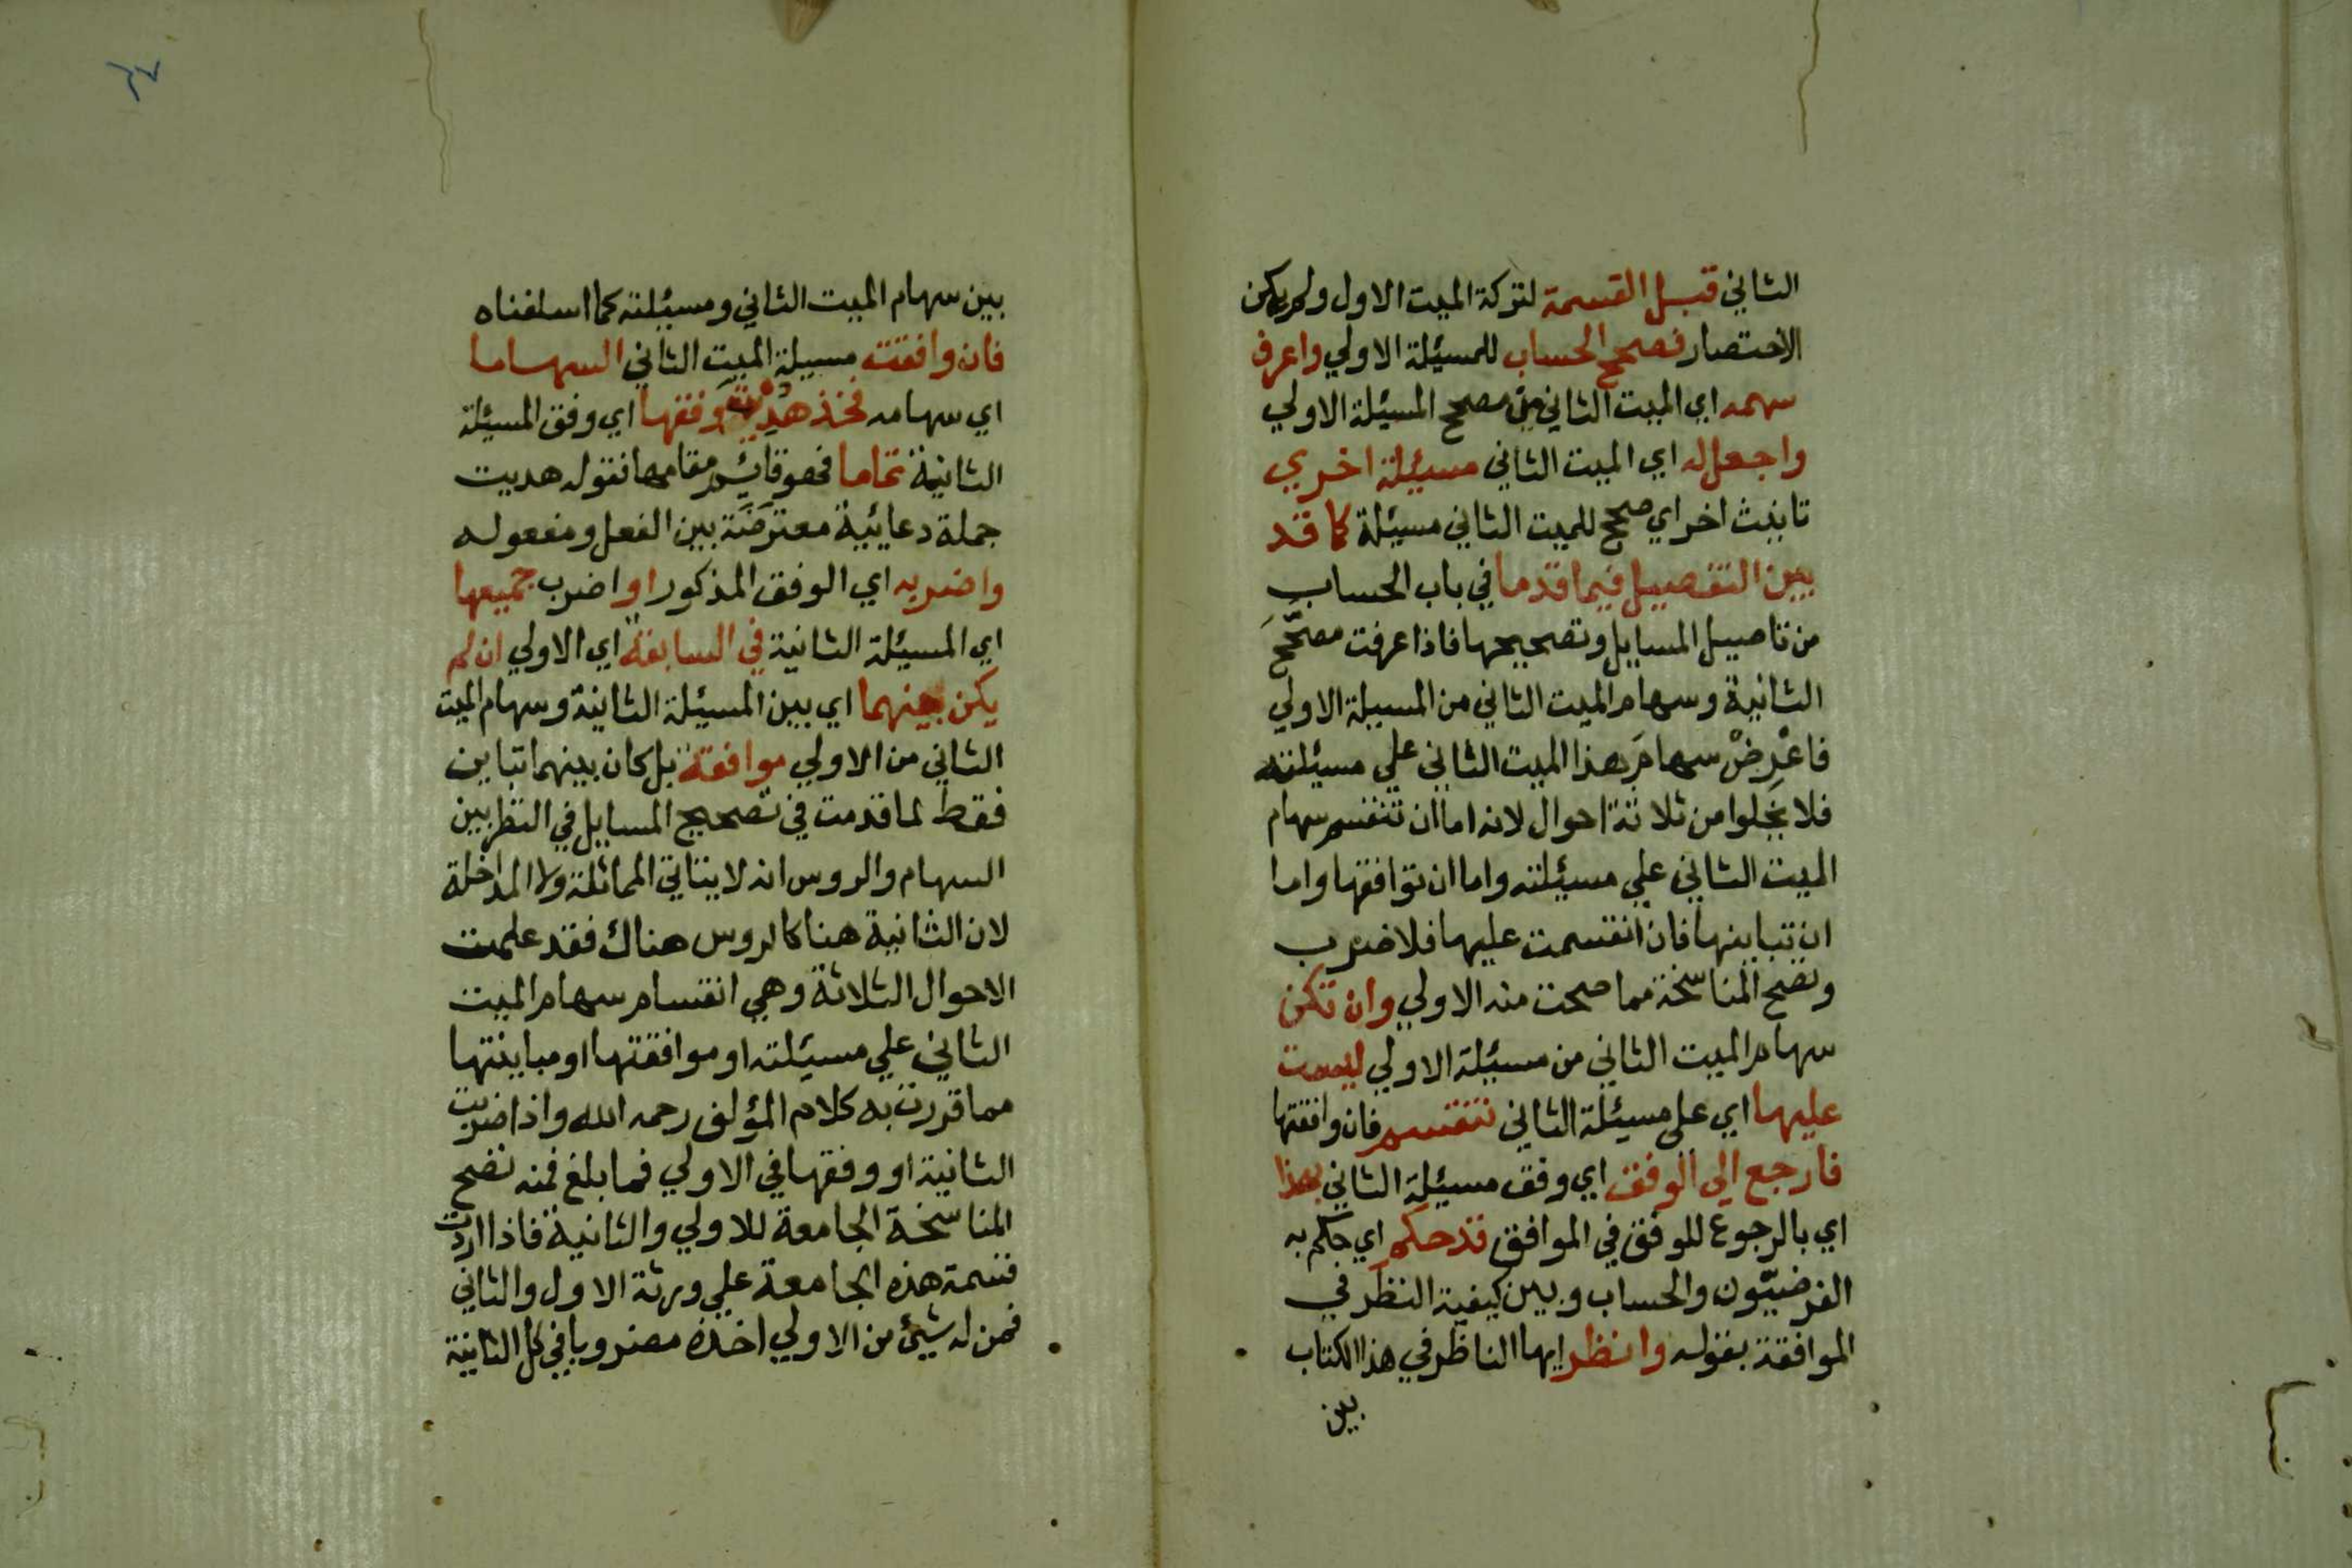 الثاني قبل القسمة لتركة الميت الاول ولم يمكن
الاختصار فصحح الحساب للمسئلة الاولي واعرف
سهمه اي الميت الثاني من مصحح المسئلة الاولي
واجعل له اي الميت الثاني مسئيلة اخري
تانيث اخر اي صحح للميت الثاني مسئيلة كما قد
بين التفصيل فيما قدما في باب الحساب
من تاصيل المسايل وتصحيحها فاذا عرفت مصحّحَ
الثانية وسهام الميت الثاني من المسيلة الاولي
فاعْرِضْ سهامَ هذا الميت الثاني علي مسيئلته
فلا يخلوا من ثلاثة احوال لانه اما ان تنقسم سهام
الميت الثاني علي مسيئلته واما ان توافقها واما
ان تباينها فان انقسمت عليها فلا ضرب
وتصح المناسخة مما صحت منه الاولي وان تكن
سهام الميت الثاني من مسيئلة الاولي ليست
عليها اي على مسيئلة الثاني تنقسم فان وافقتها
فارجع الى الوفق اي وفق مسيئلة الثاني بهذا
اي بالرجوع للوفق في الموافق قد حكم اي حكم به
الفرضيّون والحساب وبين كيفية النظر في
الموافقة بقوله وانظر ايها الناظر في هذا الكتاب
بين
٦٧
بين سهام الميت الثاني ومسيئلته كما اسلفناه
فان وافقت مسيلة الميت الثاني السهاما
اي سهامه فخذ هُدِيتَ وفقها اي وفق المسيئلة
الثانية تماما فهو قائم مقامها فقوله هديت
جملة دعائية معترضَة بين الفعل ومفعوله
واضربه اي الوفق المذكور او اضرب جميعها
اي المسيئلة الثانية في السابقة اي الاولي ان لم
يكن بينهما اي بين المسيئلة الثانية وسهام الميت
الثاني من الاولي موافقة بل كان بينهما تباين
فقط لما قدمت في تصحيح المسايل في النظر بين
السهام والروس انه لا يتاتي المماثلة ولا المداخلة
لان الثانية هنا كالروس هناك فقد علمت
الاحوال الثلاثة وهي انقسام سهام الميت
الثاني علي مسيئلته او موافقتها او مباينتها
مما قررت به كلام المؤلف رحمه الله واذا ضربت
الثانية او وفقها في الاولي فما بلغ فمنه تصح
المناسخة الجامعة للاولي والثانية فاذا اردت
قسمة هذه الجامعة علي ورثة الاول والثاني
فمن له شيئ من الاولي اخذه مضروبا في كل الثانية